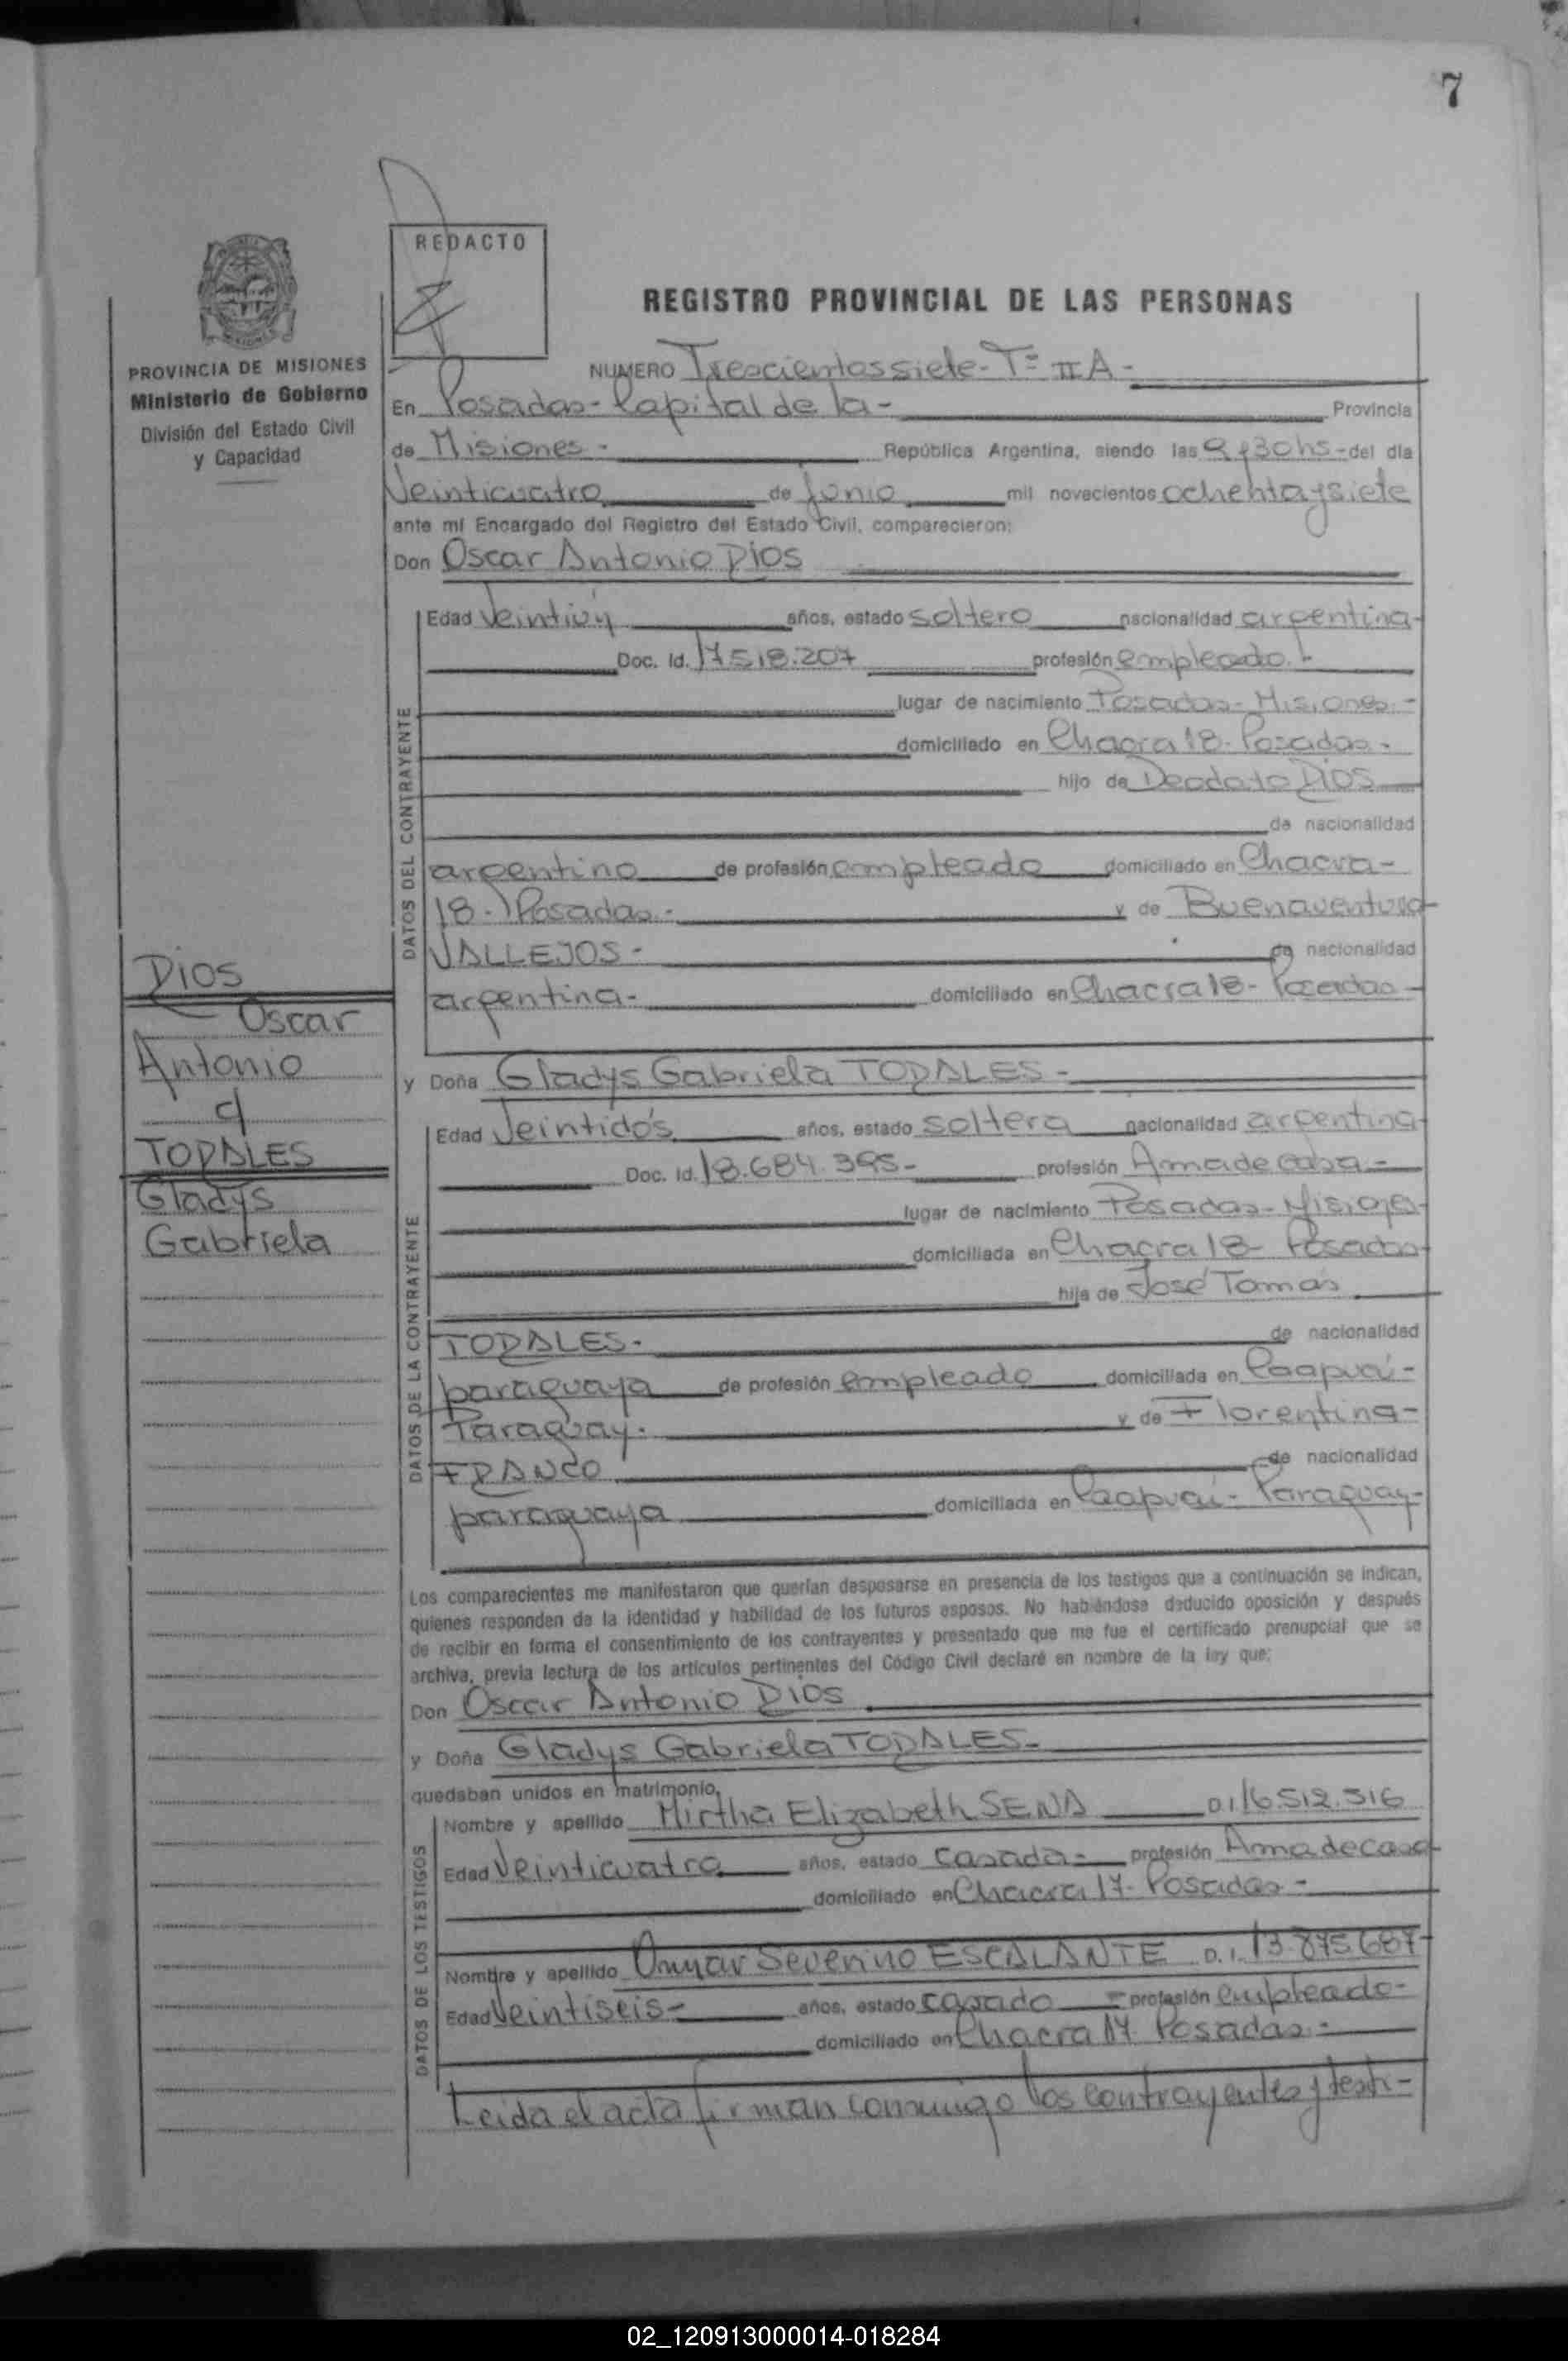 7
REDACTO
REGISTRO PROVINCIAL DE LAS PERSONAS
PROVINCIA DE MISIONES
Ministerio de Gobierno
División del Estado Civil
y Capacidad
NUMERO Trescientos siete - Tº II A -
En Posadas - Capital de la - Provincia
de Misiones - República Argentina, siendo las 9 y 30 hs - del día
Veinticuatro de Junio mil novecientos ochenta y siete
ante mí Encargado del Registro del Estado Civil, comparecieron:
Don Oscar Antonio DIOS
DATOS DEL CONTRAYENTE
Edad Veintiún años, estado soltero nacionalidad argentina -
Doc. Id. 17.518.207 profesión empleado. -
lugar de nacimiento Posadas - Misiones -
domiciliado en Chacra 18 - Posadas -
hijo de Deodato DIOS
de nacionalidad
argentino de profesión empleado domiciliado en Chacra -
18 - Posadas - y de Buenaventura
VALLEJOS - de nacionalidad
argentina - domiciliado en Chacra 18 - Posadas -
DIOS
Oscar
Antonio
c/
TORALES
Gladys
Gabriela
y Doña Gladys Gabriela TORALES -
DATOS DE LA CONTRAYENTE
Edad Veintidós años, estado soltera nacionalidad argentina
Doc. Id. 18.684.395 - profesión Ama de casa -
lugar de nacimiento Posadas - Misiones
domiciliada en Chacra 18 - Posadas
hija de José Tomás
TORALES - de nacionalidad
paraguaya de profesión empleado domiciliada en Caapucú -
Paraguay. y de Florentina -
FRANCO de nacionalidad
paraguaya domiciliada en Caapucú - Paraguay -
Los comparecientes me manifestaron que querían desposarse en presencia de los testigos que a continuación se indican,
quienes responden de la identidad y habilidad de los futuros esposos. No habiéndose deducido oposición y después
de recibir en forma el consentimiento de los contrayentes y presentado que me fue el certificado prenupcial que se
archiva, previa lectura de los artículos pertinentes del Código Civil declaré en nombre de la ley que:
Don Oscar Antonio DIOS
y Doña Gladys Gabriela TORALES -
quedaban unidos en matrimonio.
DATOS DE LOS TESTIGOS
Nombre y apellido Mirtha Elizabeth SENA D.I. 16.512.516
Edad Veinticuatro años, estado casada - profesión Ama de casa
domiciliado en Chacra 17 - Posadas -
Nombre y apellido Omar Severino ESCALANTE D.I. 13.875.687 -
Edad Veintiseis - años, estado casado - profesión empleado -
domiciliado en Chacra 17 Posadas -
Leida el acta firman conmigo los contrayentes y testi-
02_120913000014-018284